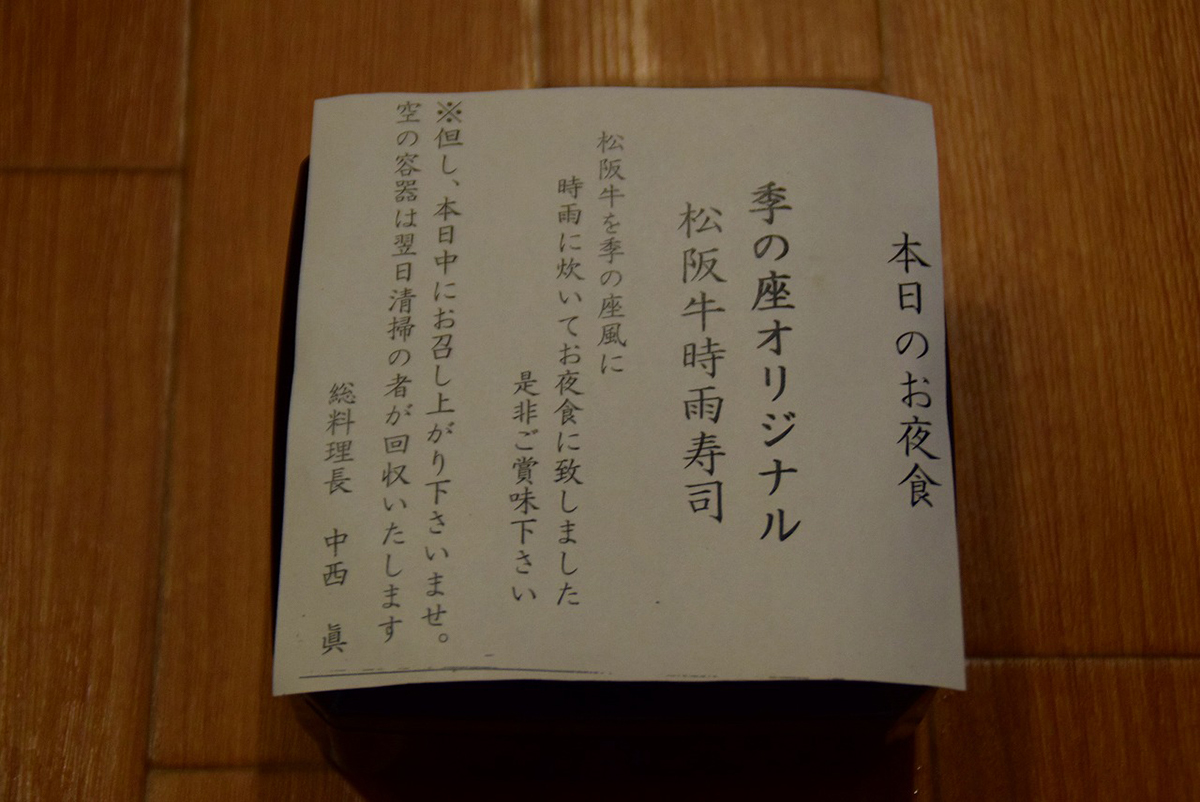 本日のお夜食
季の座オリジナル
松阪牛時雨寿司
松阪牛を季の座風に
時雨に炊いてお夜食に致しました
是非ご賞味下さい
※但し、本日中にお召し上がり下さいませ。
空の容器は翌日清掃の者が回収いたします
総料理長　中西　眞